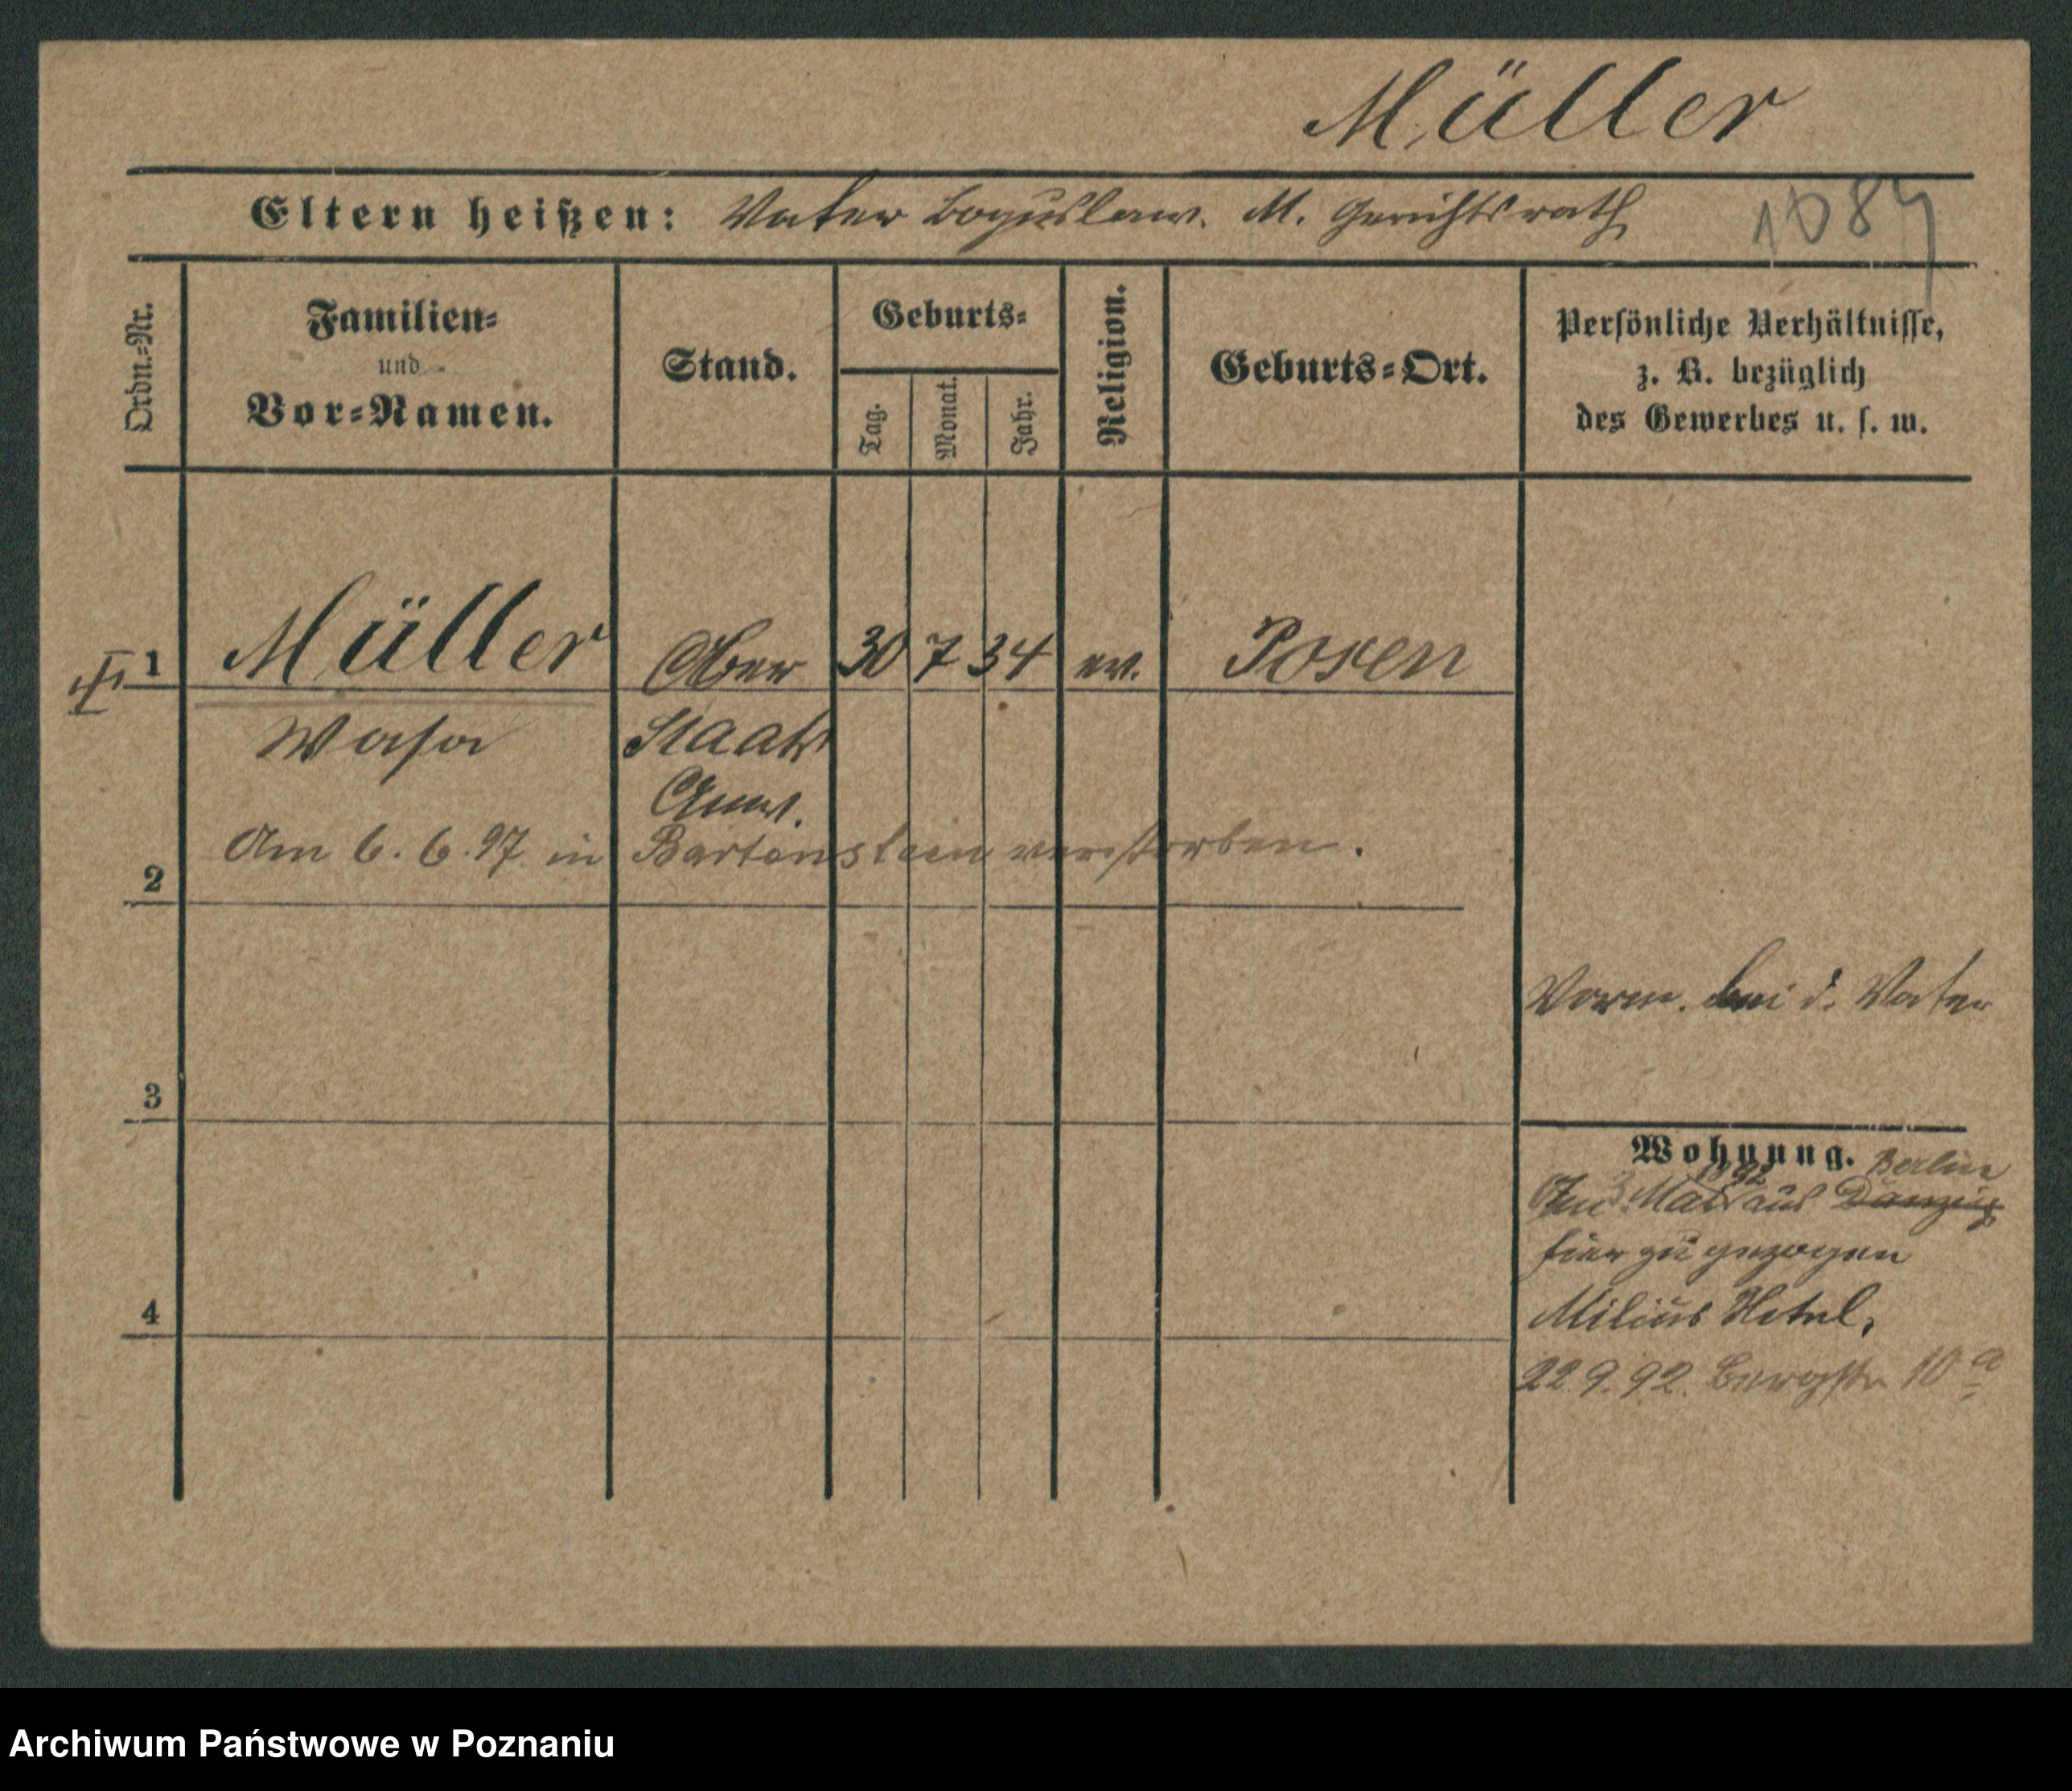 Müller
Eltern heißen: Vater Boguslaw. M. Gerichtsrath
1089
Ordn.=Nr.
Familien=
und
Vor=Namen.
Stand.
Geburts=
Tag.
Monat.
Jahr.
Religion.
Geburts=Ort.
Persönliche Verhältnisse,
z. B. bezüglich
des Gewerbes u. s. w.
1 Müller Ober 30 7 34 ev. Posen
Wasa Staats
Anw.
Am 6. 6. 97 in Bartenstein verstorben.
2
Vorm. bei d. Vater
3
Wohnung. Berlin
1892
Mai aus Danzig
hier zu gezogen
Milius Hotel,
4
22.9.92. Bergstr 10 a
Archiwum Państwowe w Poznaniu